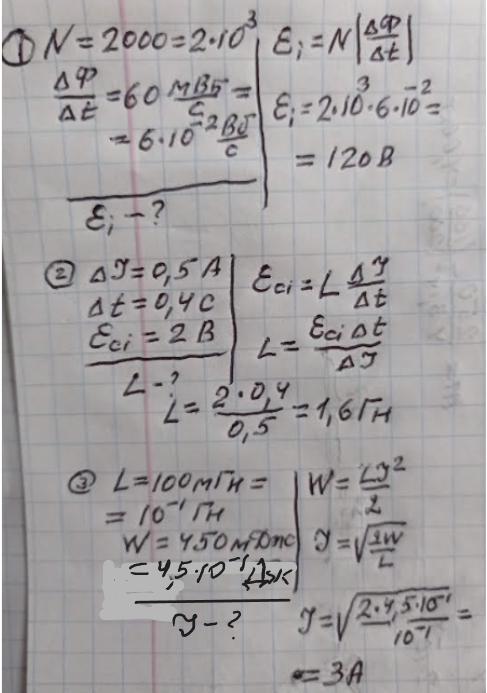 ① N = 2000 = 2·10³
ΔФ/Δt = 60 мВб/с =
= 6·10⁻² Вб/с
Ɛi - ?
Ɛi = N|ΔФ/Δt|
Ɛi = 2·10³·6·10⁻² =
= 120 В
② ΔI = 0,5 А
Δt = 0,4 с
Ɛci = 2 В
L - ?
Ɛci = L ΔI/Δt
L = Ɛci Δt/ΔI
L = 2·0,4/0,5 = 1,6 Гн
③ L = 100 мГн =
= 10⁻¹ Гн
W = 450 мДж
= 4,5·10⁻¹ Дж
I - ?
W = LI²/2
I = √(2W/L)
I = √(2·4,5·10⁻¹/10⁻¹) =
= 3 А